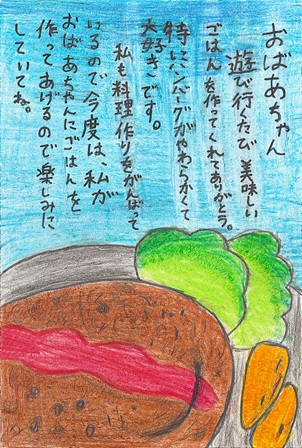 おばあちゃん
遊び行くたび美味しい
ごはんを作ってくれてありがとう。
特にハンバーグがやわらかくて
大好きです。
私も料理作りをがんばって
いるので今度は、私が
おばあちゃんにごはんを
作ってあげるので楽しみに
していてね。